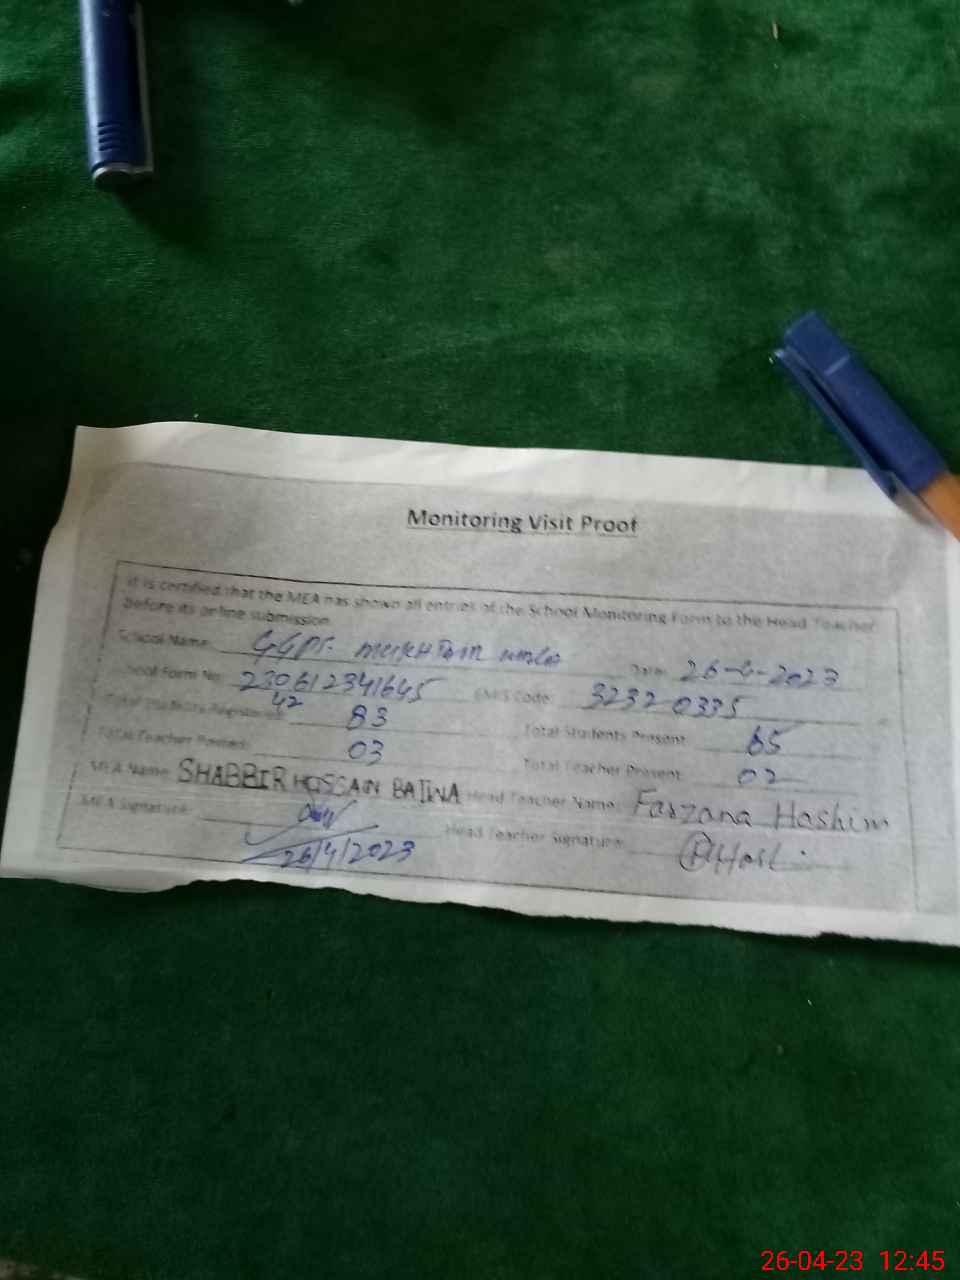 Monitoring Visit Proof
It is certified that the MEA has shown all entries of the School Monitoring Form to the Head Teacher
before its online submission
School Name: GGPS.
Date: 26-4-2023
School Form No: 230612341645 EMIS Code: 3232 0335
42
Total Students Registered: 83 Total Students Present: 65
Total Teacher Posted: 03 Total Teacher Present: 02
MEA Name: SHABBIR HUSSAIN BAJWA Head Teacher Name: Farzana Hashim
MEA Signature: Head Teacher Signature:
26/4/2023
26-04-23 12:45